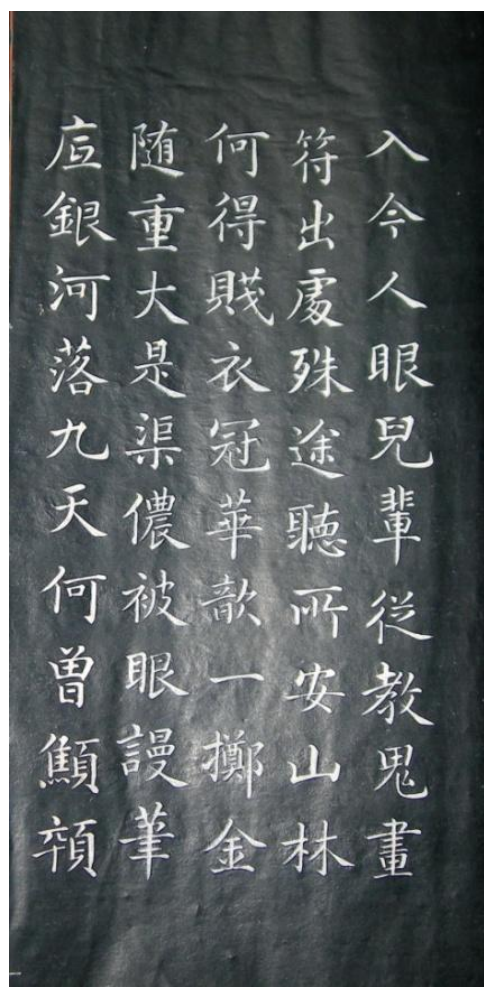 入今人眼兒輩從教鬼畫
符出處殊途聽所安山林
何得賤衣冠華歆一擲金
随重大是渠儂被眼謾筆
底銀河落九天何曾顦顇